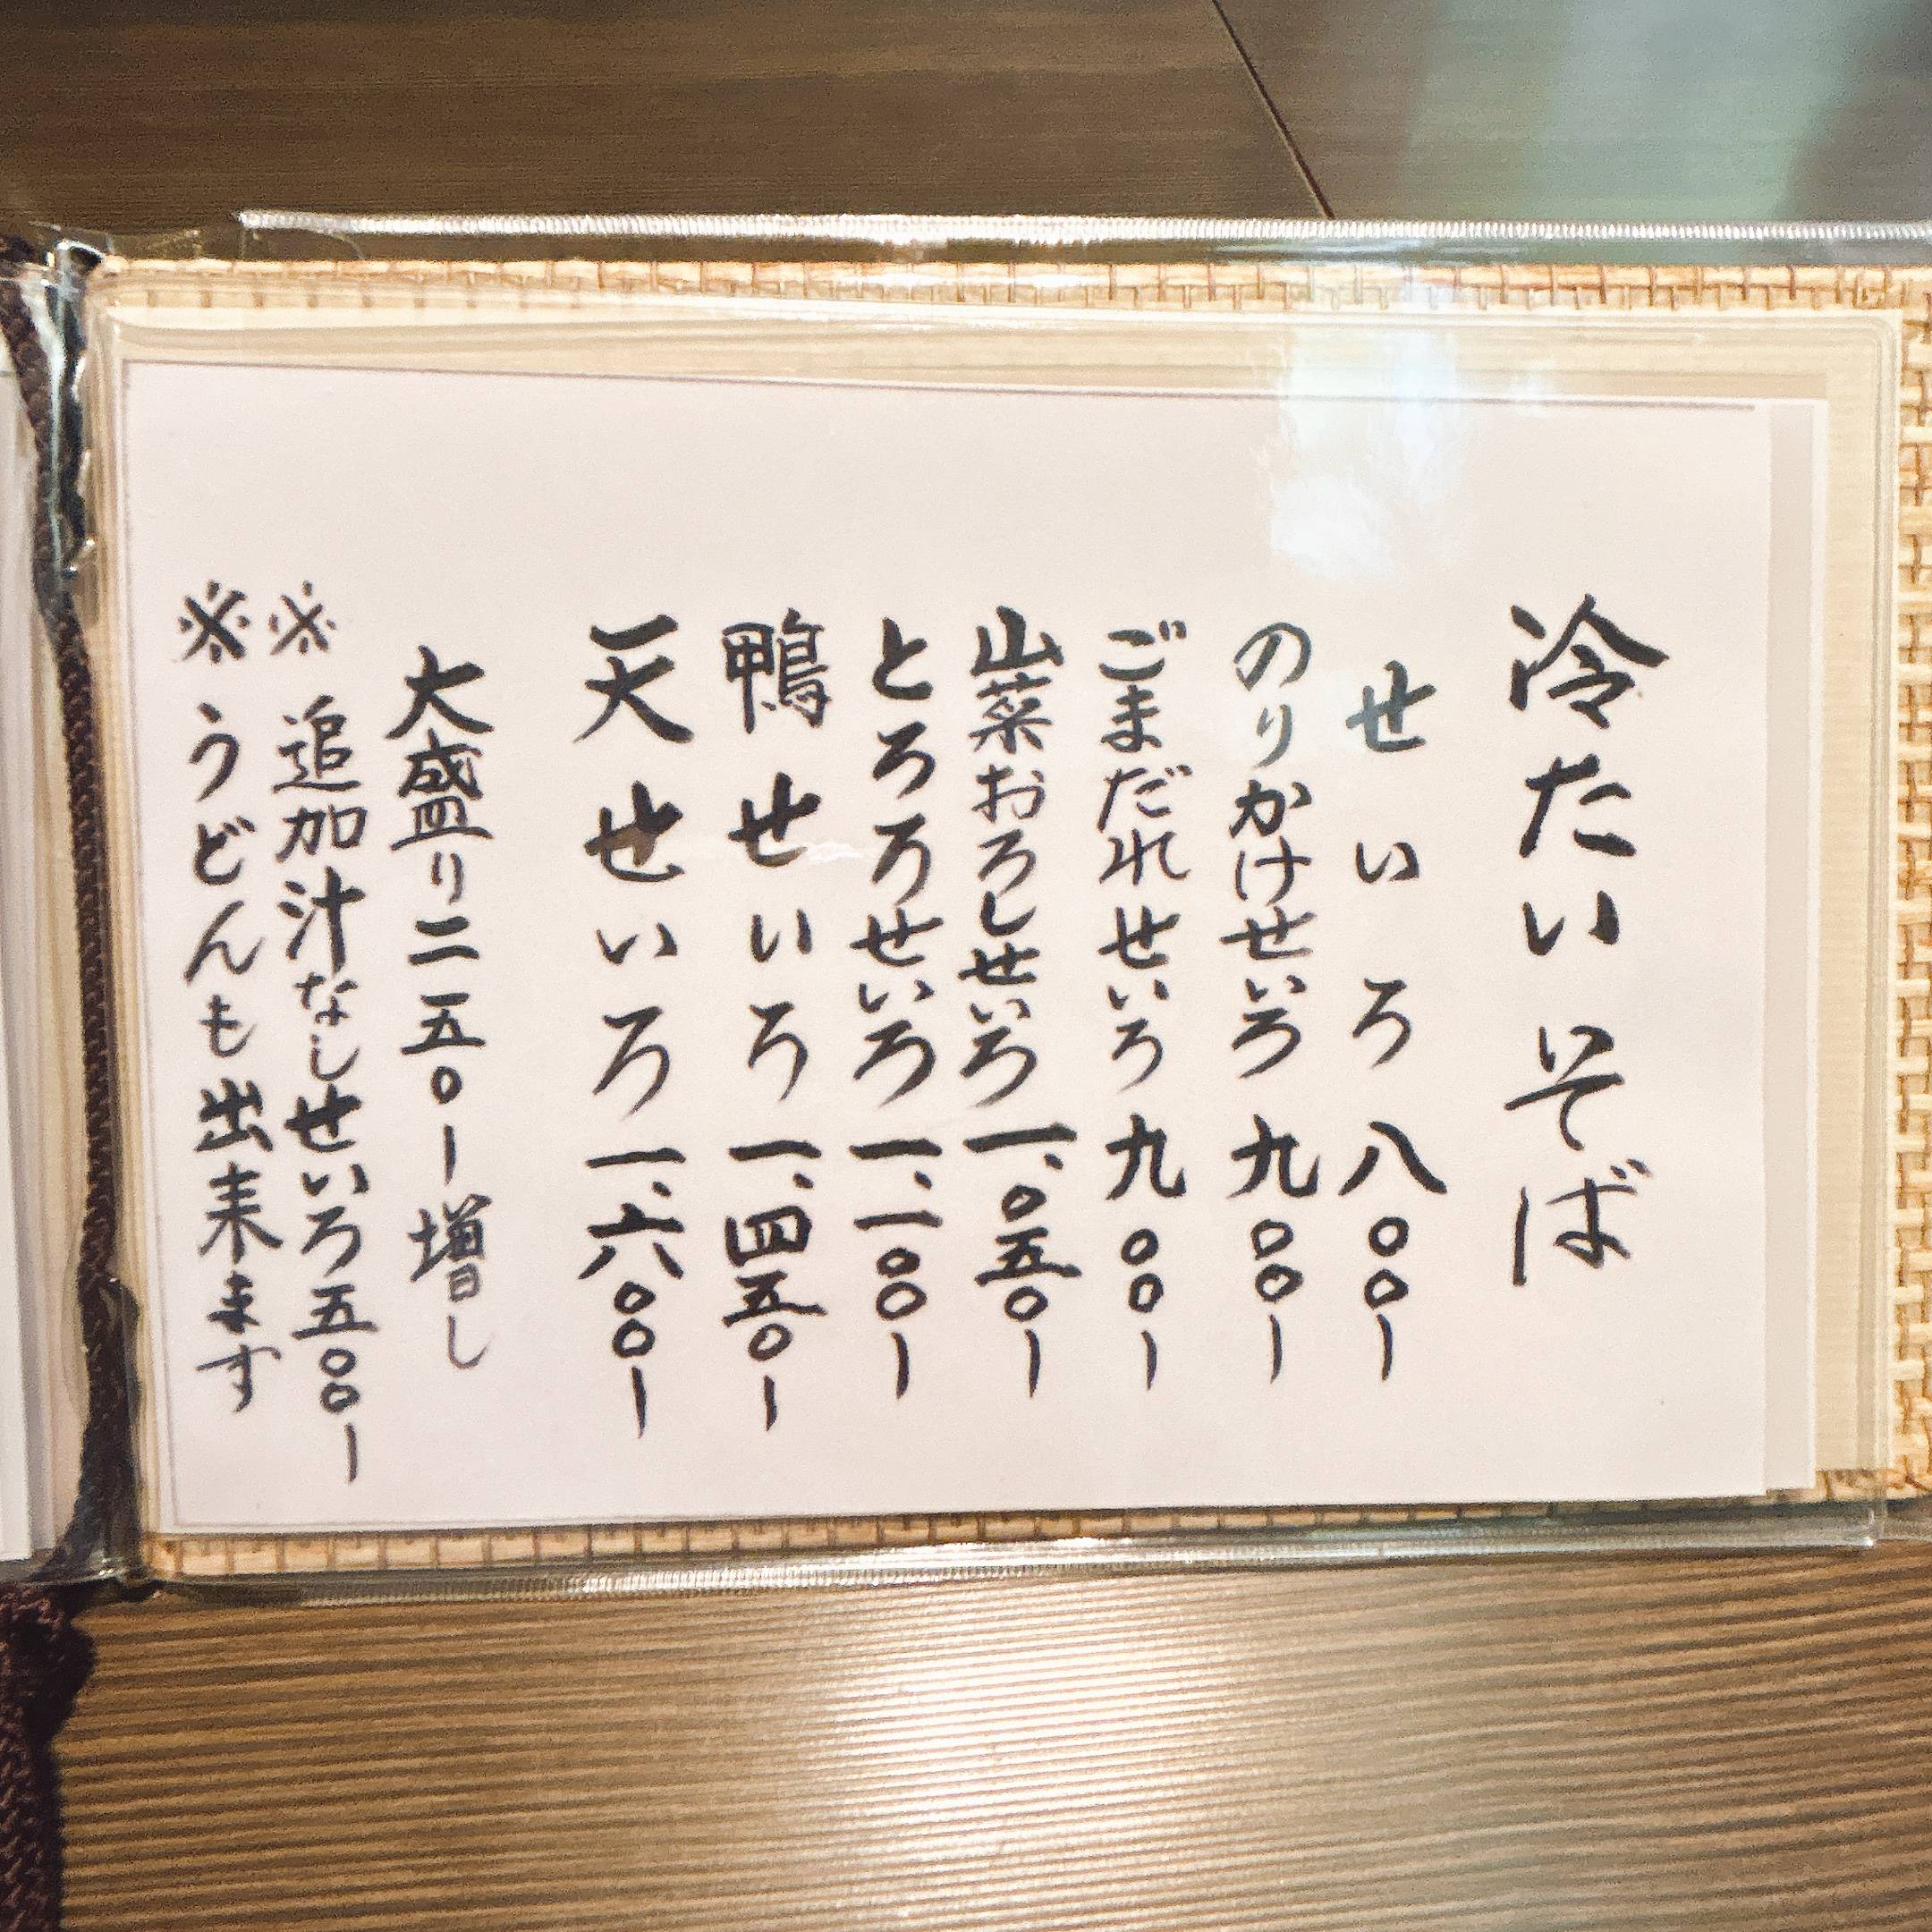 冷たいそば
せいろ 八〇〇ー
のりかけせいろ 九〇〇ー
ごまだれせいろ 九〇〇ー
山菜おろしせいろ 一、〇五〇ー
とろろせいろ 一、一〇〇ー
鴨せいろ 一、四五〇ー
天せいろ 一、六〇〇ー
大盛り二五〇ー増し
※追加汁なしせいろ五〇〇ー
※うどんも出来ます